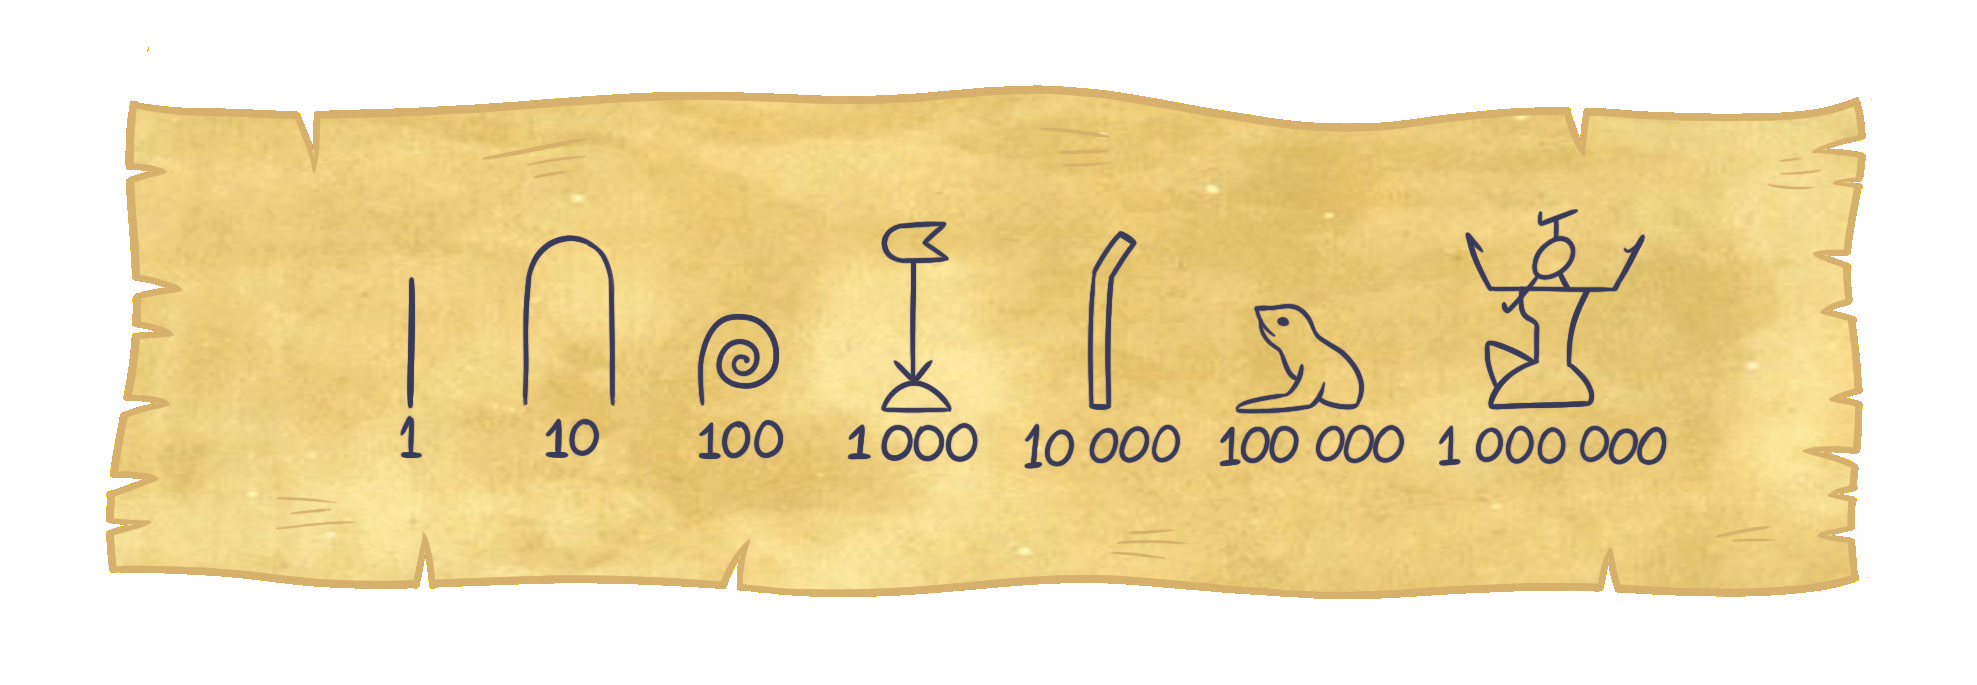 1 10 100 1 000 10 000 100 000 1 000 000